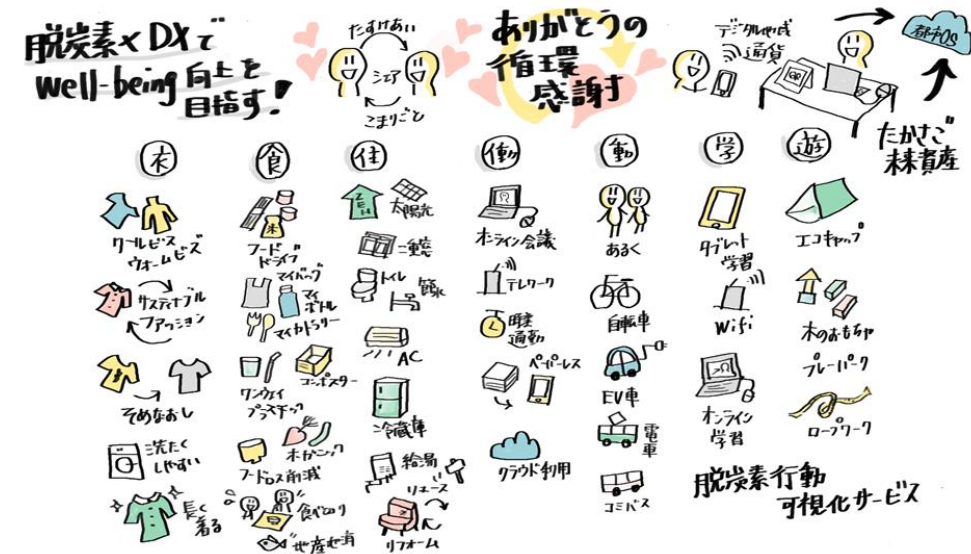 脱炭素×DXで
well-being 向上を
目指す!
たすけあい
シェア
こまりごと
ありがとうの
循環
感謝
デジタル地域
通貨
都市OS
たかさご
未来資産
衣
クールビズ
ウォームビズ
サスティナブル
ファッション
そめなおし
洗たく
しやすい
長く
着る
食
フード
ドライブ
マイバッグ
マイ
ボトル
マイカトラリー
ワンウェイ
プラスチック
コンポスター
オーガニック
フードロス削減
食べきり
地産地消
住
ZEH
太陽光
二重窓
トイレ
節水
AC
冷蔵庫
給湯
リユース
リフォーム
働
オンライン会議
テレワーク
時差
通勤
ペーパーレス
クラウド利用
動
あるく
自転車
EV車
電
車
コミバス
学
タブレット
学習
Wifi
オンライン
学習
遊
エコキャンプ
木のおもちゃ
プレーパーク
ロープワーク
脱炭素行動
可視化サービス